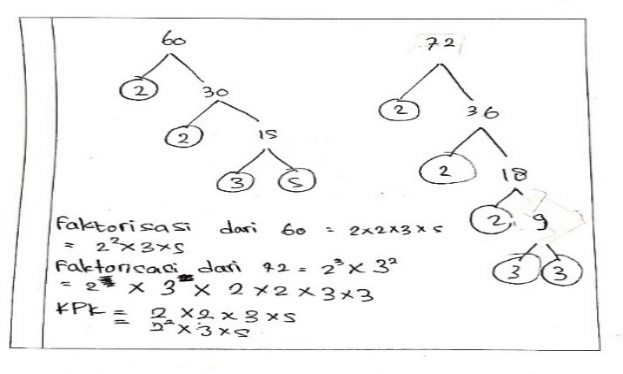 60
2 30
2 15
3 5
72
2 36
2 18
2 9
3 3
Faktorisasi dari 60 = 2x2x3x5
= 2²x3x5
Faktorisasi dari 72 = 2³x3²
= 2 x 3 x 2x2x3x3
KPK = 2x2x3x5
= 2²x3x5